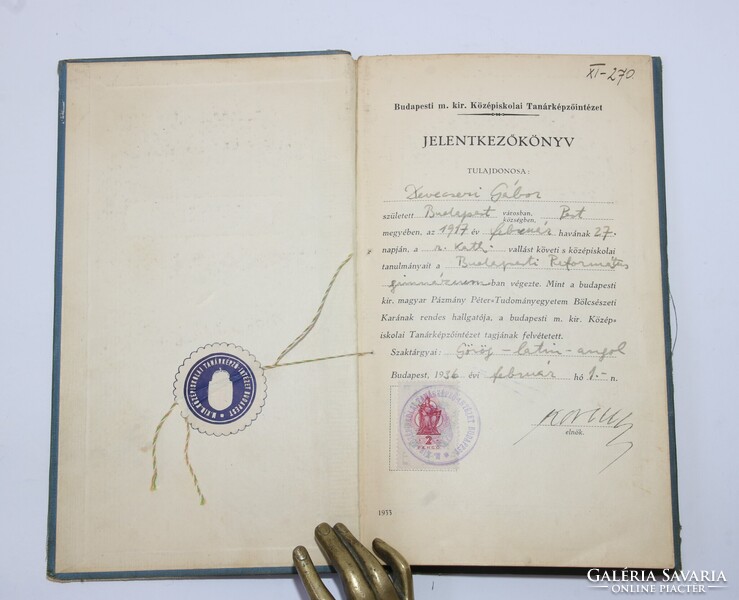 XI-270.
Budapesti m. kir. Középiskolai Tanárképzőintézet
JELENTKEZŐKÖNYV
TULAJDONOSA:
Devecseri Gábor
született Budapest városban, községben, Pest
megyében, az 1917 év február havának 27.
napján, a r. kath. vallást követi s középiskolai
tanulmányait a Budapesti Református
gimnáziumban végezte. Mint a budapesti
kir. magyar Pázmány Péter-Tudományegyetem Bölcsészeti
Karának rendes hallgatója, a budapesti m. kir. Közép-
iskolai Tanárképzőintézet tagjának felvétetett.
Szaktárgyai: Görög - latin - angol
Budapest, 1936 évi február hó 1.-n.
elnök.
2
1933
M. KIR. KÖZÉPISKOLAI TANÁRKÉPZŐ-INTÉZET BUDAPEST
GALÉRIA SAVARIA
ONLINE PIACTÉR